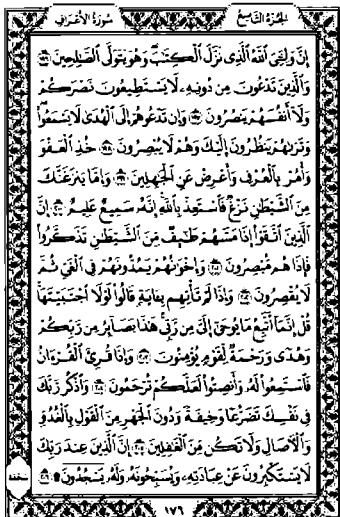 الجزء التاسع
سورة الأعراف
إِنَّ وَلِـِّۧيَ ٱللَّهُ ٱلَّذِي نَزَّلَ ٱلْكِتَٰبَ وَهُوَ يَتَوَلَّى ٱلصَّٰلِحِينَ ١٩٦
وَٱلَّذِينَ تَدْعُونَ مِن دُونِهِۦ لَا يَسْتَطِيعُونَ نَصْرَكُمْ
وَلَآ أَنفُسَهُمْ يَنصُرُونَ ١٩٧ وَإِن تَدْعُوهُمْ إِلَى ٱلْهُدَىٰ لَا يَسْمَعُوا۟
وَتَرَىٰهُمْ يَنظُرُونَ إِلَيْكَ وَهُمْ لَا يُبْصِرُونَ ١٩٨ خُذِ ٱلْعَفْوَ
وَأْمُرْ بِٱلْعُرْفِ وَأَعْرِضْ عَنِ ٱلْجَٰهِلِينَ ١٩٩ وَإِمَّا يَنزَغَنَّكَ
مِنَ ٱلشَّيْطَٰنِ نَزْغٌ فَٱسْتَعِذْ بِٱللَّهِ إِنَّهُۥ سَمِيعٌ عَلِيمٌ ٢٠٠ إِنَّ
ٱلَّذِينَ ٱتَّقَوْا۟ إِذَا مَسَّهُمْ طَٰٓئِفٌ مِّنَ ٱلشَّيْطَٰنِ تَذَكَّرُوا۟
فَإِذَا هُم مُّبْصِرُونَ ٢٠١ وَإِخْوَٰنُهُمْ يَمُدُّونَهُمْ فِي ٱلْغَيِّ ثُمَّ
لَا يُقْصِرُونَ ٢٠٢ وَإِذَا لَمْ تَأْتِهِم بِـَٔايَةٍ قَالُوا۟ لَوْلَا ٱجْتَبَيْتَهَا
قُلْ إِنَّمَآ أَتَّبِعُ مَا يُوحَىٰٓ إِلَيَّ مِن رَّبِّي هَٰذَا بَصَآئِرُ مِن رَّبِّكُمْ
وَهُدًى وَرَحْمَةٌ لِّقَوْمٍ يُؤْمِنُونَ ٢٠٣ وَإِذَا قُرِئَ ٱلْقُرْءَانُ
فَٱسْتَمِعُوا۟ لَهُۥ وَأَنصِتُوا۟ لَعَلَّكُمْ تُرْحَمُونَ ٢٠٤ وَٱذْكُر رَّبَّكَ
فِي نَفْسِكَ تَضَرُّعًا وَخِيفَةً وَدُونَ ٱلْجَهْرِ مِنَ ٱلْقَوْلِ بِٱلْغُدُوِّ
وَٱلْـَٔاصَالِ وَلَا تَكُن مِّنَ ٱلْغَٰفِلِينَ ٢٠٥ إِنَّ ٱلَّذِينَ عِندَ رَبِّكَ
لَا يَسْتَكْبِرُونَ عَنْ عِبَادَتِهِۦ وَيُسَبِّحُونَهُۥ وَلَهُۥ يَسْجُدُونَ ۩ ٢٠٦
سجدة
١٧٦